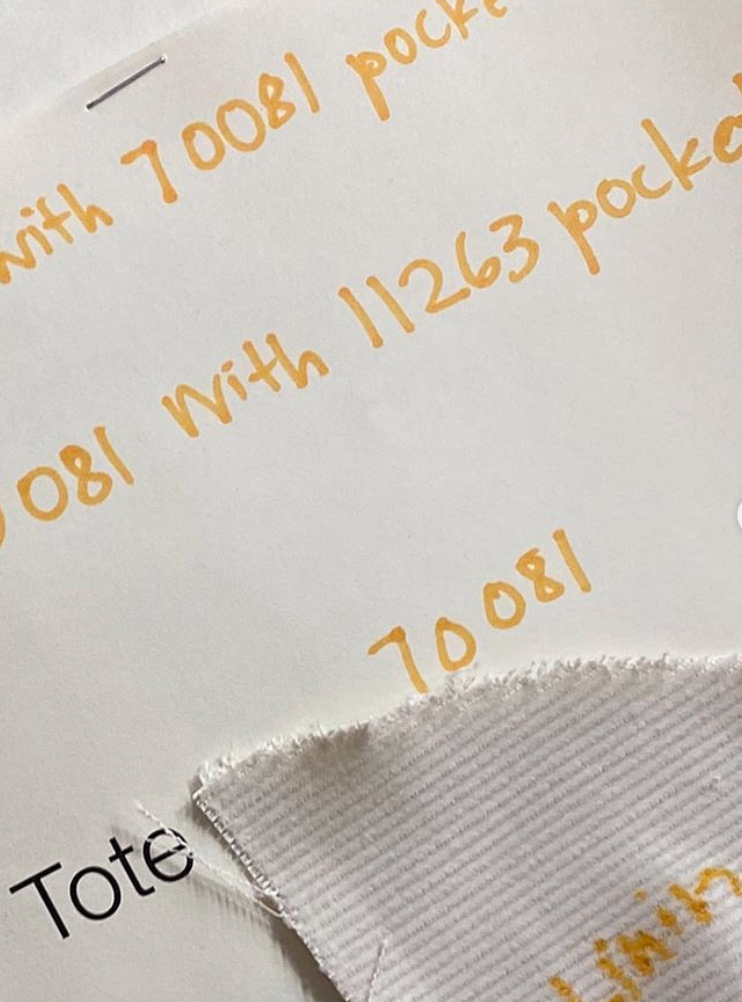 with 70081 pocke
081 with 11263 pocke
70081
Tote
Linin